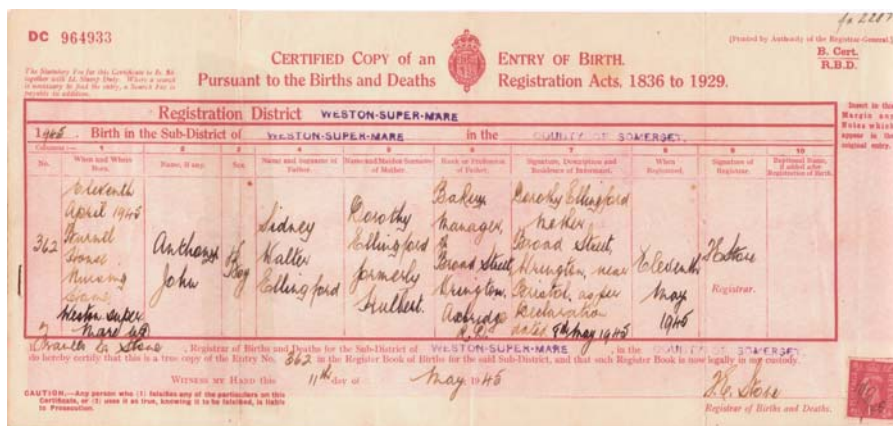 DC 964933
[Printed by Authority of the Registrar-General.]
B. Cert.
R.B.D.
CERTIFIED COPY of an ENTRY OF BIRTH.
Pursuant to the Births and Deaths Registration Acts, 1836 to 1929.
The Statutory Fee for this Certificate is
together with Stamp Duty. Where a search
is necessary to find the entry, a Search Fee is
payable in addition.
Insert in this
Margin any
Notes which
appear in the
original entry.
Registration District WESTON-SUPER-MARE
1945. Birth in the Sub-District of WESTON-SUPER-MARE in the COUNTY OF SOMERSET.
Columns:— 1 2 3 4 5 6 7 8 9 10
No.
When and Where
Born.
Name, if any.
Sex.
Name and Surname of
Father.
Name and Maiden Surname
of Mother.
Rank or Profession
of Father.
Signature, Description and
Residence of Informant.
When
Registered.
Signature of
Registrar.
Baptismal Name,
if added after
Registration of Birth.
362
Eleventh
April 1945
Nursing
Weston super
Mare
Anthony
John
Boy
Sidney
Walter
Ellingford
Dorothy
Ellingford
formerly
Hulbert.
Manager,
of
Broad Street,
Wrington,
Axbridge
R.D.
Dorothy Ellingford
Mother
Broad Street,
Wrington, near
Bristol, as per
Declaration
dated 8th May 1945
Eleventh
May
1945
Registrar.
Registrar of Births and Deaths for the Sub-District of WESTON-SUPER-MARE, in the COUNTY OF SOMERSET,
do hereby certify that this is a true copy of the Entry No. 362 in the Register Book of Births for the said Sub-District, and that such Register Book is now legally in my custody.
WITNESS MY HAND this 11th day of May 1945
CAUTION.—Any person who (1) falsifies any of the particulars on this
Certificate, or (2) uses it as true, knowing it to be falsified, is liable
to Prosecution.
Registrar of Births and Deaths.